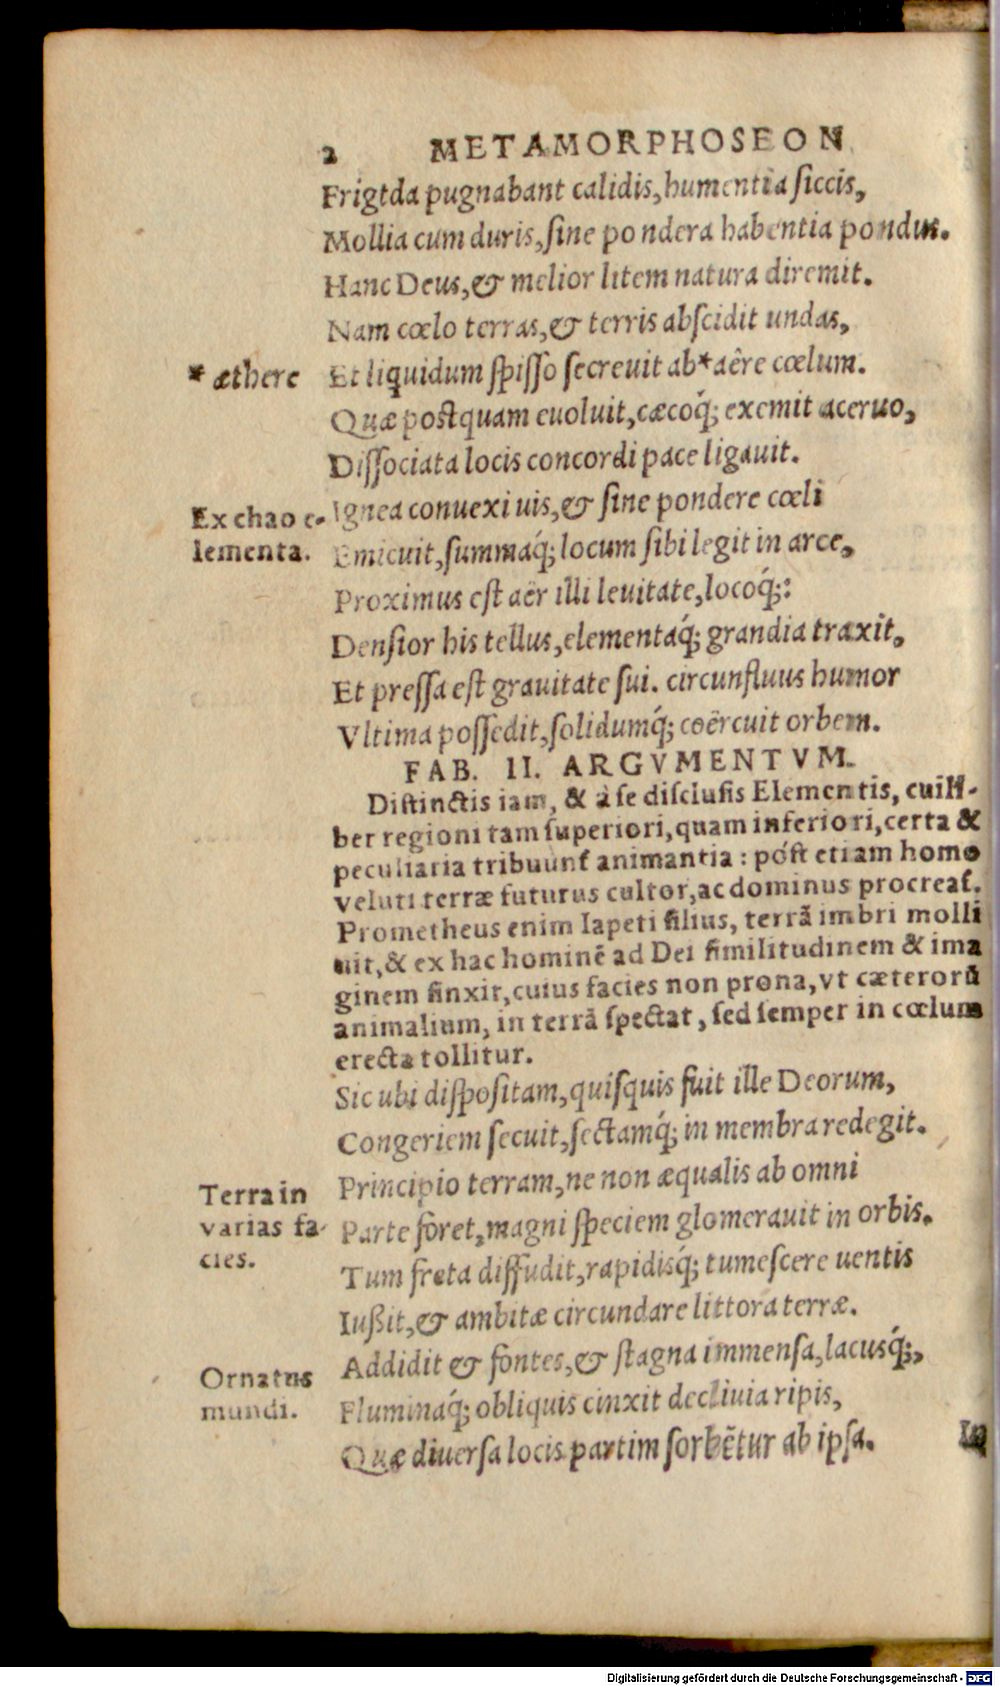 2 METAMORPHOSEON
Frigtda pugnabant calidis, humentia ſiccis,
Mollia cum duris, ſine pondera habentia pondus.
Hanc Deus, & melior litem natura diremit.
Nam cœlo terras, & terris abſcidit undas,
* æthere
Et liquidum ſpiſſo ſecreuit ab * aêre cœlum.
Quæ postquam euoluit, cæcoq́; exemit aceruo,
Diſſociata locis concordi pace ligauit.
Ex chao e-
lementa.
Ignea conuexi uis, & ſine pondere cœli
Emicuit, ſummaq́; locum ſibi legit in arce,
Proximus eſt aër illi leuitate, locoq́;:
Denſior his tellus, elementaq́; grandia traxit,
Et preſſa eſt grauitate ſui. circunfluus humor
Vltima poſſedit, ſolidumq́; coërcuit orbem.
FAB. II. ARGVMENTVM.
Diſtinctis iam, & à ſe diſcluſis Elementis, cuili-
ber regioni tam ſuperiori, quam inferiori, certa &
peculiaria tribuunt animantia: póſt etiam homo
veluti terræ futurus cultor, ac dominus procreat.
Prometheus enim Iapeti filius, terrã imbri molli
uit, & ex hac hominẽ ad Dei ſimilitudinem & ima
ginem finxit, cuius facies non prona, vt cæterorũ
animalium, in terrã ſpectat, ſed ſemper in cœlum
erecta tollitur.
Sic ubi diſpoſitam, quiſquis fuit ille Deorum,
Congeriem ſecuit, ſectamq́; in membra redegit.
Terra in
varias fa-
cies.
Principio terram, ne non æqualis ab omni
Parte foret, magni ſpeciem glomerauit in orbis.
Tum freta diffudit, rapidisq́; tumeſcere uentis
Iußit, & ambitæ circundare littora terræ.
Ornatus
mundi.
Addidit & fontes, & ſtagna immenſa, lacusq́;,
Fluminaq́; obliquis cinxit decliuia ripis,
Quæ diuerſa locis partim ſorbẽtur ab ipſa.
In
Digitalisierung gefördert durch die Deutsche Forschungsgemeinschaft - DFG